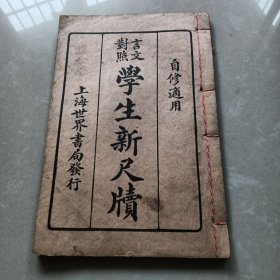 自修適用
言文對照
學生新尺牘
上海世界書局發行